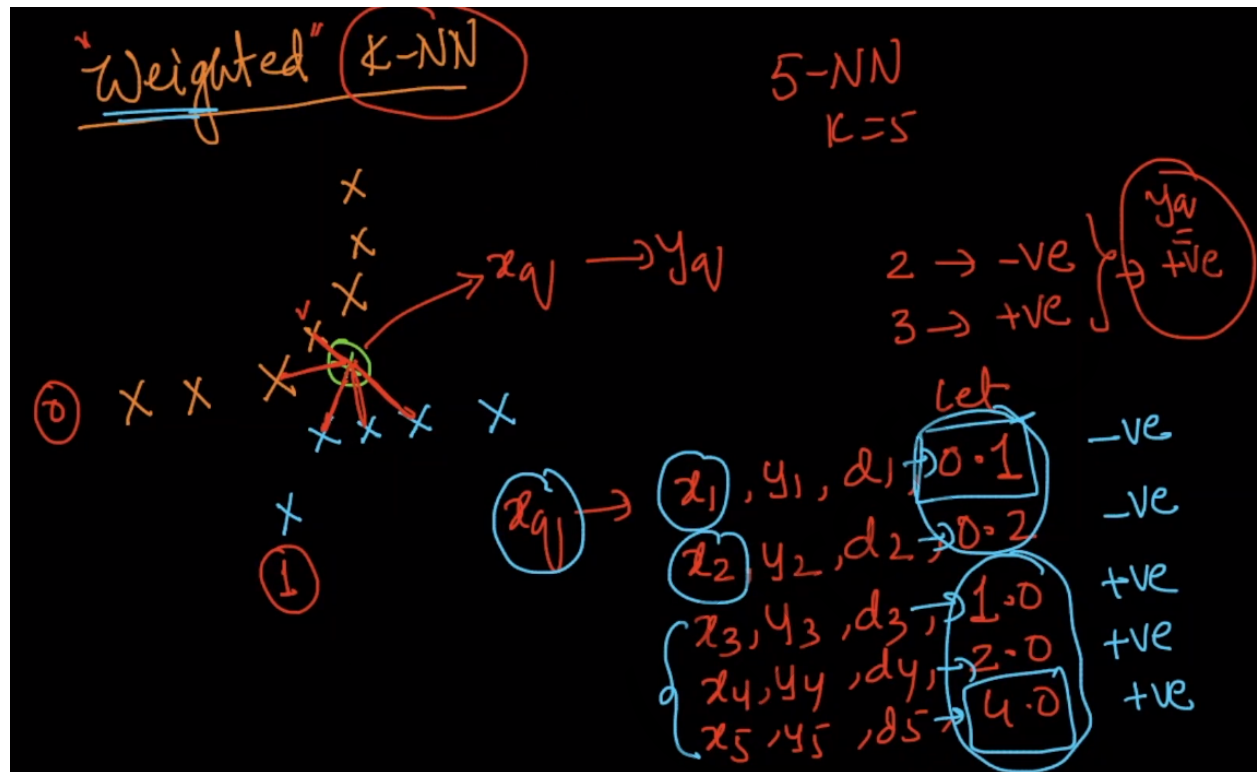 "Weighted" K-NN
5-NN
K=5
xq → yq
2 → -ve
3 → +ve
yq = +ve
0
1
Let
xq → x1, y1, d1, → 0.1 -ve
x2, y2, d2 → 0.2 -ve
x3, y3, d3, → 1.0 +ve
x4, y4, d4, → 2.0 +ve
x5, y5, d5 → 4.0 +ve